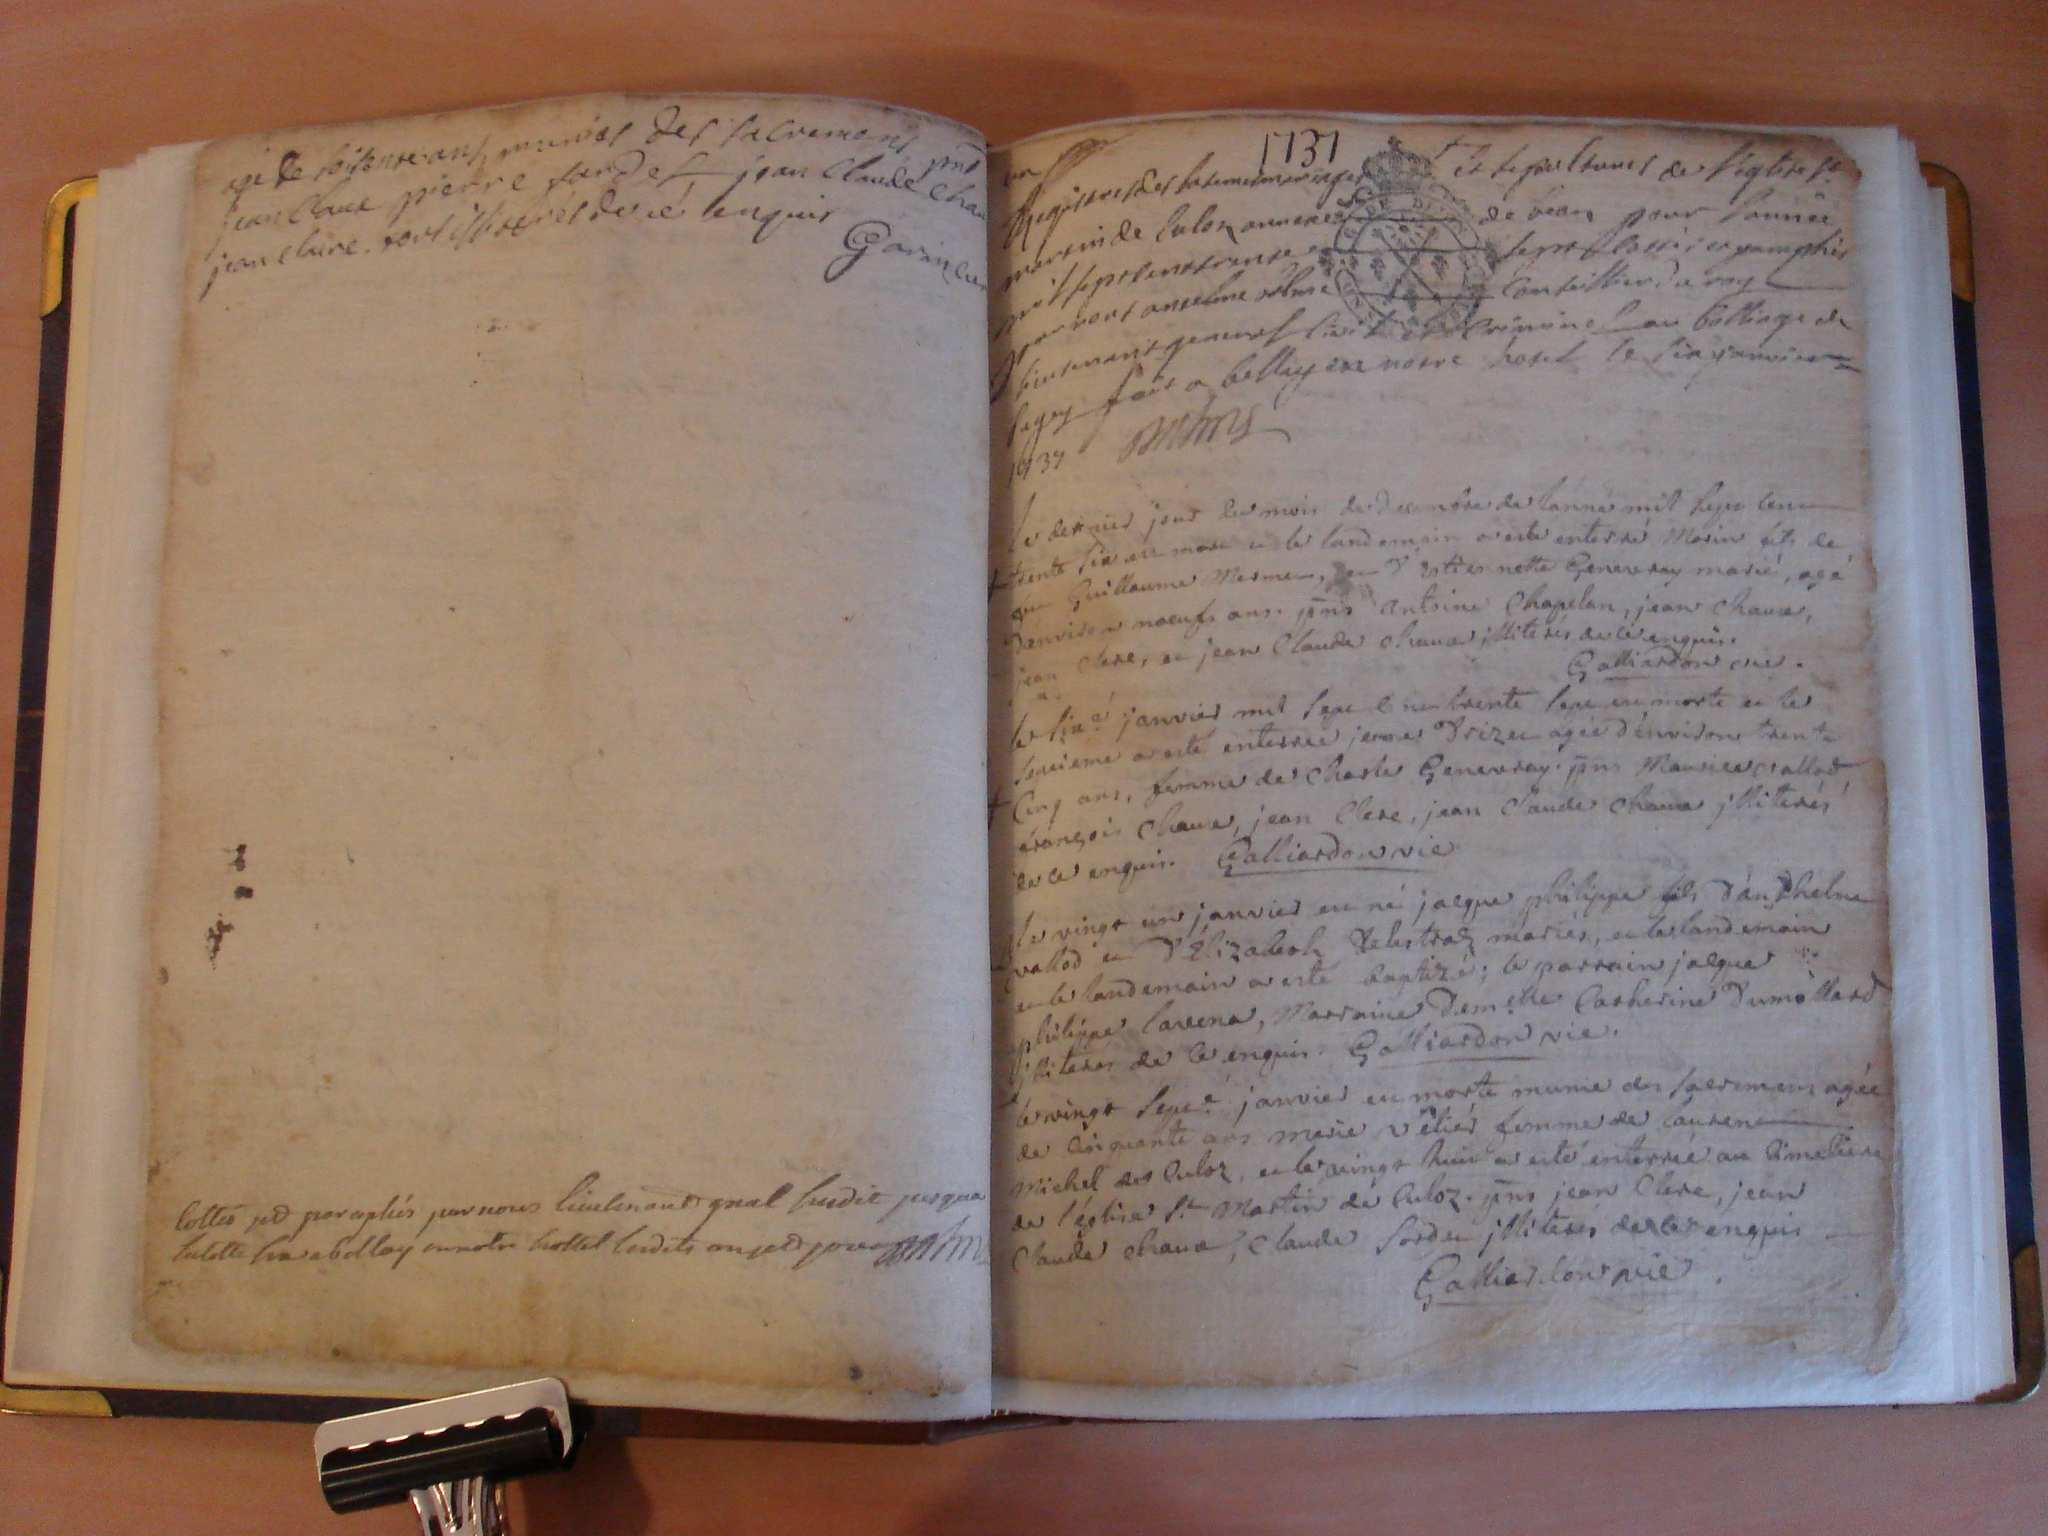 agé de soisente ans munies des sacremens pñs
jean Claude pierre sordet jean Claude Chaue
jean Claire. tous illiterés de cé enquis
Garin curé
Cottés et paraphés par nous lieutenant gnal susdit jusqua
en notre hottel
1737
un
Registres des batemes mariages et sepultures de l'eglise St
martin de Culoz annexe de béon pour l'année
mil sept cent trente sept Cottés et paraphés
par nous anselme Conseiller du roy
lieutenant general civil et Criminel au balliage de
bugey fait a belley en notre hotel le six janvier
1737
le dernier jour du mois de décembre de l'anné mil sept cent
trente six est mort et le landemain a esté enterré Morin fils de
feu Guillaume Mermet, et d'Estiennette Genevray mariés, agé
d'environ noeufs ans. pñs Antoine Chapelan, jean Chaue,
jean Clere, et jean Claude Chaue illiterés de ce enquis.
Galliardon curé.
le six.e janvier mil sept cent trente sept est morte et le
septieme a esté enterrée jeanne agée d'environ trente
Cinq ans, femme de Charle Genevray. pñs Maurice vallod
françois Chaue, jean Clere, jean Claude Chaue illiterés
de ce enquis. Galliardon vic
le vingt un janvier est né jacque philippe fils d'Anthelme
vallod et d'Elizabeth mariés, et le landemain
et le landemain a esté baptizé; le parrain jacque
philippe Marraine Dem.elle Catherine Dumollard
illiterés de ce enquis. Galliardon vic.
le vingt sept.e janvier est morte munie des sacremens agée
de Cinquante ans Marie femme de Laurent
Michel de Culoz, et le vingt huit a esté enterrée au Cimetiere
de l'église St Martin de Culoz. pñs jean Clere, jean
Claude Chaue, Claude Sordet illiterés de ce enquis
Galliardon vic.